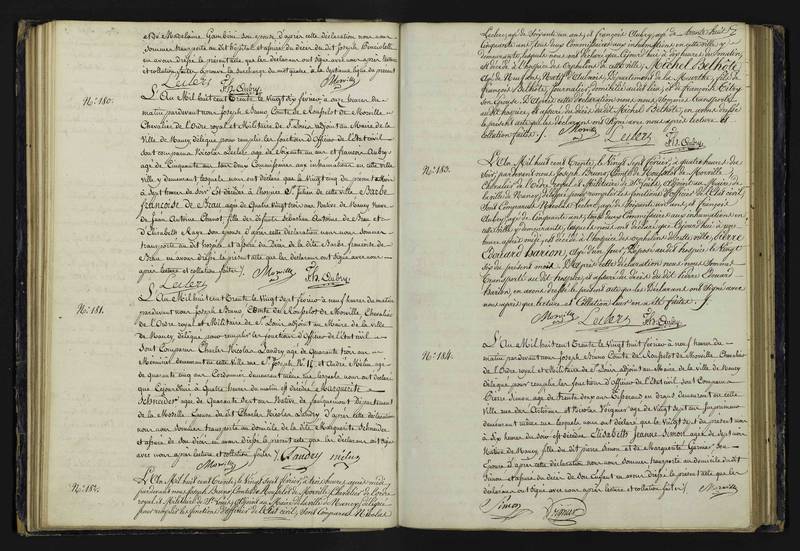 et de Madelaine Gambini son épouse d'après cette déclaration nous nous
sommes transporté au dit hôpital et assuré du décès du dit Joseph
en avons dressé le présent acte que les déclarans ont signé avec nous après lecture
et collation faites
Leclerc Fs. Aubry Morville
No. 180.
L'An Mil huit cent Trente le Vingt six février à onze heures du
matin pardevant nous Joseph Bruno Comte de Rouspelot de Morville
Chevalier de l'Ordre royal et Militaire de St. Louis, adjoint au Maire de la
Ville de Nancy délégué pour remplir les fonctions d'Officier de l'Etat civil
sont comparus Nicolas Leclerc agé de soixante un ans et françois Aubry
agé de Cinquante un tous deux Commissaires aux inhumations en cette ville
y demeurant lesquels nous ont déclaré que le Vingt cinq du présent mois
à sept heures du soir est décédée à l'hospice St. Julien de cette ville Barbe
françoise de Beau agée de Quatre Vingt trois ans Native de Nancy Veuve
de feu Antoine fille des défunts Sébastien Antoine de Beau et
d'Elisabeth Raye son épouse d'après cette déclaration nous nous sommes
transporté au dit hospice et assuré du Décès de la dite Barbe françoise de
Beau en avons dressé le présent acte que les déclarans ont signé avec nous
après lecture et collation faites /. Morville Fs. Aubry
Leclerc
No. 181.
L'An Mil huit cent Trente le Vingt sept février à neuf heures du matin
pardevant nous Joseph Bruno Comte de Rouspelot de Morville, Chevalier
de l'Ordre royal et Militaire de St. Louis, adjoint au Maire de la Ville
de Nancy délégué pour remplir les fonctions d'Officier de l'Etat civil
Sont Comparus Charles Nicolas Landry agé de Quarante trois ans
demeurant en cette Ville rue St. Joseph No. et André agé
de quarante cinq ans Cordonnier demeurant même rue lesquels nous ont déclaré
que Cejourd'hui à Quatre heures du matin est décédée Marguerite
Schneider agée de Quarante sept ans Native de fauquemont Département
de la Moselle Epouse du dit Charles Nicolas Landry D'après cette déclaration
nous nous sommes transporté au domicile de la dite Marguerite Schneider
et assuré de son décès en avons dressé le présent acte que les déclarans ont signé
avec nous après lecture et collation faites /. Landry
Morville
No. 182.
L'An Mil huit cent Trente, le Vingt Sept février, à trois heures après midi
pardevant nous Joseph Bruno Comte de Rouspelot de Morville Chevalier de l'ordre
royal et Militaire de St. Louis, Adjoint au Maire de la ville de Nancy, délégué
pour remplir les fonctions d'officier de l'Etat civil, Sont Comparus Nicolas
Leclerc, agé de Soixante un ans, et françois Aubry, agé de
Cinquante ans, tous deux Commissaires aux inhumations en cette ville, y
demeurant, lesquels nous ont déclaré que Cejourd'hui, à
est décédé à l'hospice des Orphelins de cette ville, Michel Belhôte,
agé de Neuf ans, Natif d'Aulnois, Département de la Meurthe, fils de
françois Belhôte, Journalier, domicilié audit lieu, et de françoise
son épouse. D'après cette déclaration nous nous sommes transporté
audit hospice, et assuré du décès dudit Michel Belhôte, en avons dressé
le présent acte que les déclarans ont signé avec nous après lecture et
collation faites /. Morville Leclerc Fs. Aubry
No. 183.
L'An Mil huit cent Trente, le Vingt Sept février, à quatre heures du
Soir, pardevant nous Joseph Bruno, Comte de Rouspelot de Morville
Chevalier de l'Ordre royal et Militaire de St. Louis, Adjoint au Maire de
la Ville de Nancy, délégué pour remplir les fonctions d'Officier de l'Etat civil,
Sont Comparus Nicolas Leclerc, agé de Soixante un ans, et françois
Aubry, agé de Cinquante ans, tous deux Commissaires aux inhumations en
cette ville, y demeurant, lesquels nous ont déclaré que Cejourd'hui à une
heure après midi, est décédé à l'hospice des orphelins de cette ville, Pierre
Edouard Barion, agé d'un jour, Déposé audit hospice, le Vingt
Six du présent mois. D'après cette déclaration nous nous sommes
Transporté audit hospice, et assuré du décès du dit Pierre Edouard
Barion, en avons dressé le présent acte que les Déclarans ont Signé avec
nous après que lecture et Collation leur en a été faites. /.
Morville Leclerc Fs. Aubry
No. 184.
L'An Mil huit cent Trente le Vingt huit février à neuf heures du
matin pardevant nous Joseph Bruno Comte de Rouspelot de Morville, Chevalier
de l'Ordre royal et Militaire de St. Louis, adjoint au Maire de la Ville de Nancy
délégué pour remplir les fonctions d'Officier de l'Etat civil Sont Comparus
Pierre Simon agé de Trente deux ans demeurant en cette
Ville rue des Artisans et Nicolas agé de Vingt sept ans
demeurant même rue lesquels nous ont déclaré que le Vingt sept du présent mois
à Six heures du Soir est décédée Elisabeth Jeanne Simon agée de Sept ans
Native de Nancy fille du dit Pierre Simon et de Marguerite Garnier Son
Epouse D'après cette déclaration nous nous sommes transporté au domicile du dit
Simon et assuré du décès de son Enfant en avons dressé le présent acte que les
déclarans ont signé avec nous après lecture et collation faites /. Morville
Simon